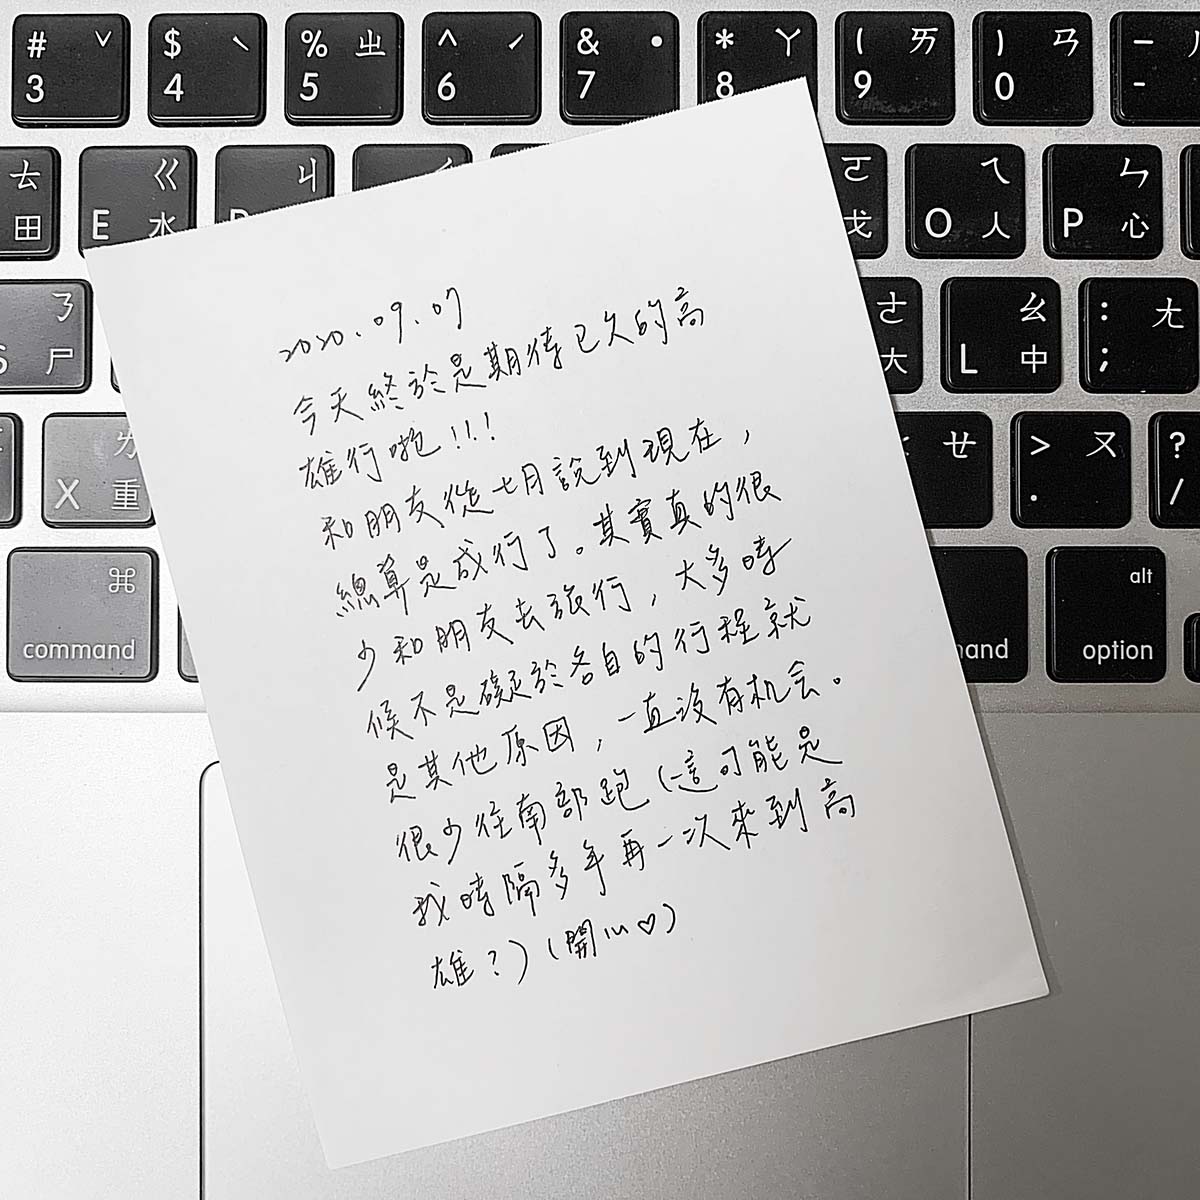 # ˇ $ ˋ % ㄓ ^ ˊ & ˙ * ㄚ ( ㄞ ) ㄢ —
3 4 5 6 7 8 9 0 -
ㄊ ㄍ ㄐ ㄛ ㄟ ㄣ
田 E 水 戈 O 人 P 心
ㄋ ㄜ ㄠ : ㄤ
S 尸 大 L 中 ;
ㄌ ㄝ > ㄡ ?
X 重 . /
⌘ alt
command option
2020.09.07
今天終於是期待已久的高
雄行啦!!!
和朋友從七月說到現在,
總算是成行了。其實真的很
少和朋友去旅行,大多時
候不是礙於各自的行程就
是其他原因,一直沒有机会。
很少往南部跑(這可能是
我時隔多年再一次來到高
雄?)(開心♡)